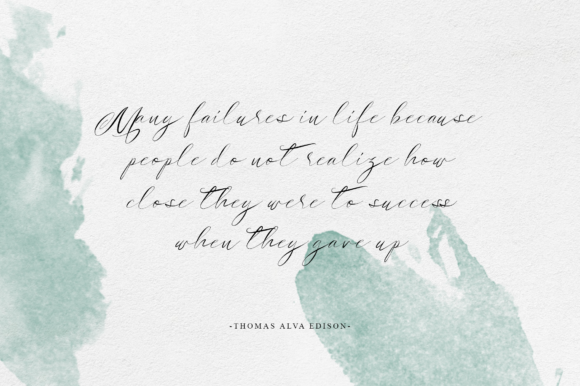 Many failures in life because
people do not realize how
close they were to success
when they gave up
-THOMAS ALVA EDISON-